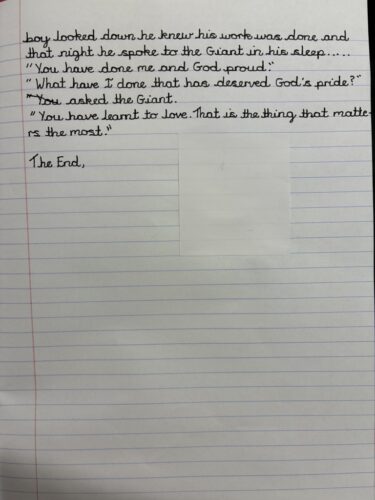 boy looked down he knew his work was done and
that night he spoke to the Giant in his sleep.....
"You have done me and God proud."
"What have I done that has deserved God's pride?"
"You asked the Giant.
"You have learnt to love. That is the thing that matte-
rs the most."
The End,